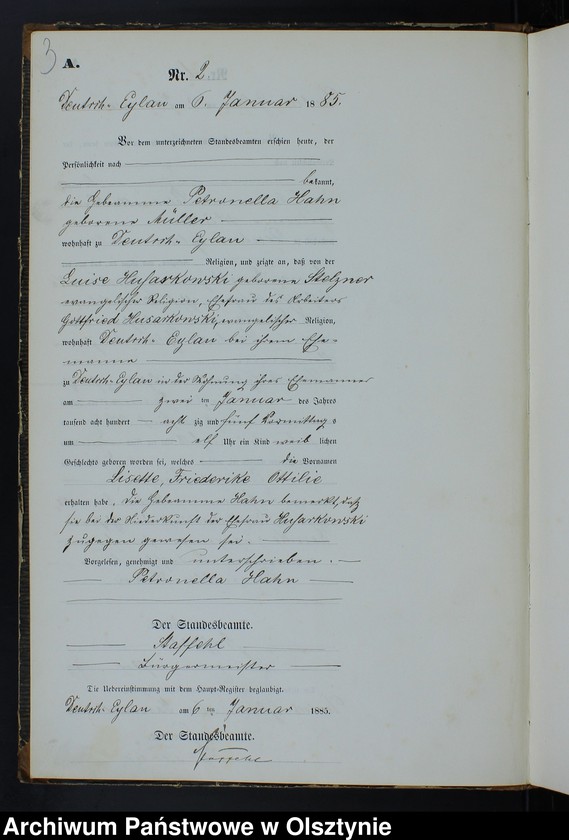 3
A.
Nr. 2
Deutsch-Eylau am 6. Januar 1885.
Vor dem unterzeichneten Standesbeamten erschien heute, der
Persönlichkeit nach
bekannt,
die Hebeamme Petronella Hahn
geborene Müller
wohnhaft zu Deutsch-Eylau
Religion, und zeigte an, daß von der
Luise Husarkowski geborene Stelzner
evangelischer Religion, Ehefrau des Arbeiters
Gottfried Husarkowski, evangelischer Religion,
wohnhaft Deutsch-Eylau bei ihrem Ehe-
manne
zu Deutsch-Eylau in der Wohnung ihres Ehemannes
am zwei ten Januar des Jahres
tausend acht hundert acht zig und fünf Vormittags
um elf Uhr ein Kind weib lichen
Geschlechts geboren worden sei, welches die Vornamen
Lisette, Friederike Ottilie
erhalten habe. Die Hebeamme Hahn bemerkt, daß
sie bei der Niederkunft der Ehefrau Husarkowski
zugegen gewesen sei.
Vorgelesen, genehmigt und unterschrieben.
Petronella Hahn
Der Standesbeamte.
Staffehl
Bürgermeister
Die Uebereinstimmung mit dem Haupt-Register beglaubigt.
Deutsch-Eylau am 6 ten Januar 1885.
Der Standesbeamte.
Staffehl
Archiwum Państwowe w Olsztynie